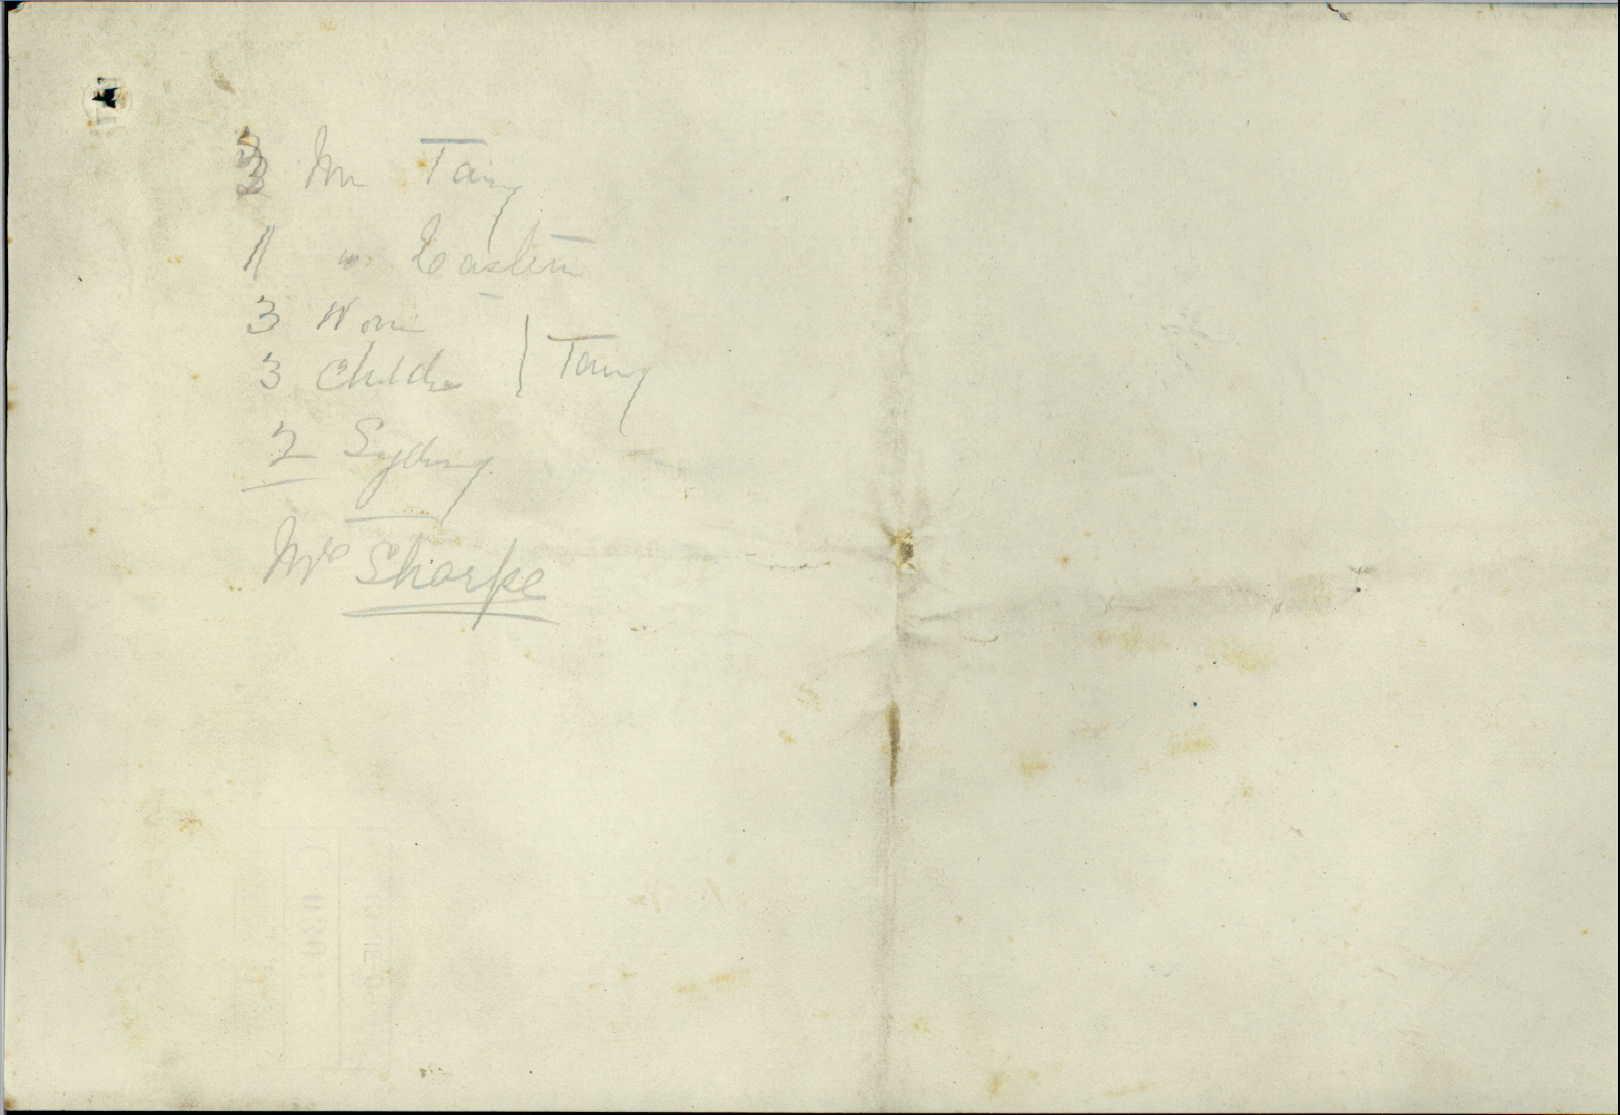 3 Mr Taiy
11 " Eastern
3 Wom
3 Childre } Taiy
2 Sydney
Mr Sharpe